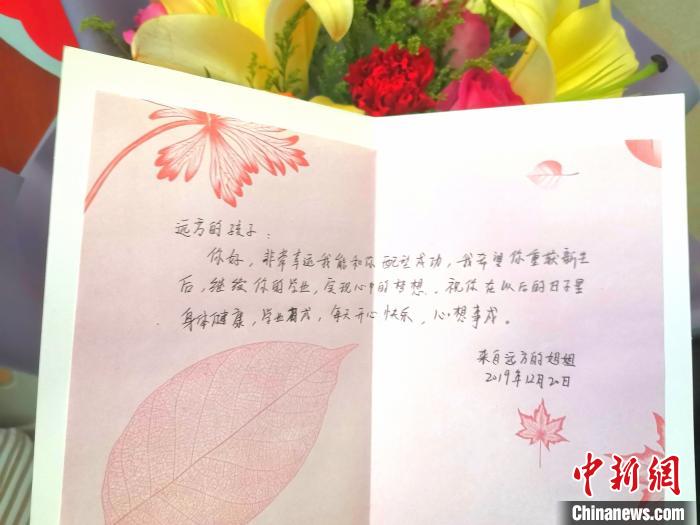 远方的孩子：
你好，非常幸运我能和你配型成功，我希望你重获新生
后，继续你的学业，实现心中的梦想，祝你在以后的日子里
身体健康，学业有成，每天开心快乐，心想事成。
来自远方的姐姐
2019年12月20日
中新網
Chinanews.com